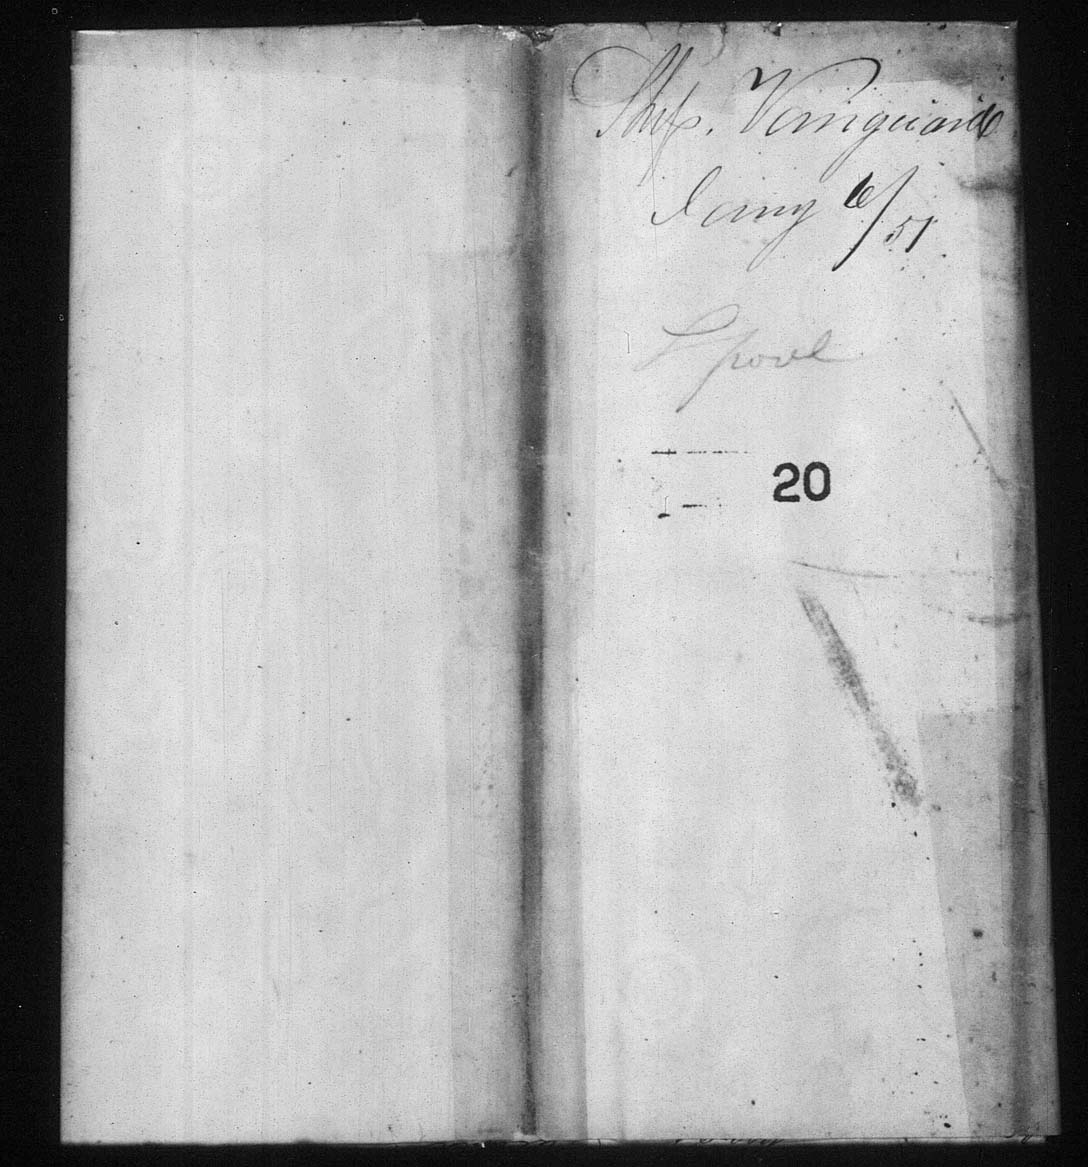 Ship. Vanguard
Jany 6/51
L'pool
20